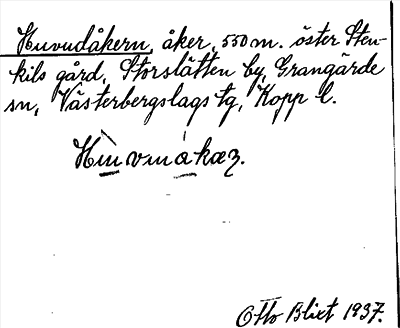 Huvudåkern, åker, 550 m. öster Sten-
kils gård, Storslätten by, Grangärde
sn, Västerbergslags tg, Kopp l.
Hɯvɯdåkæɳ.
Otto Blixt 1937.